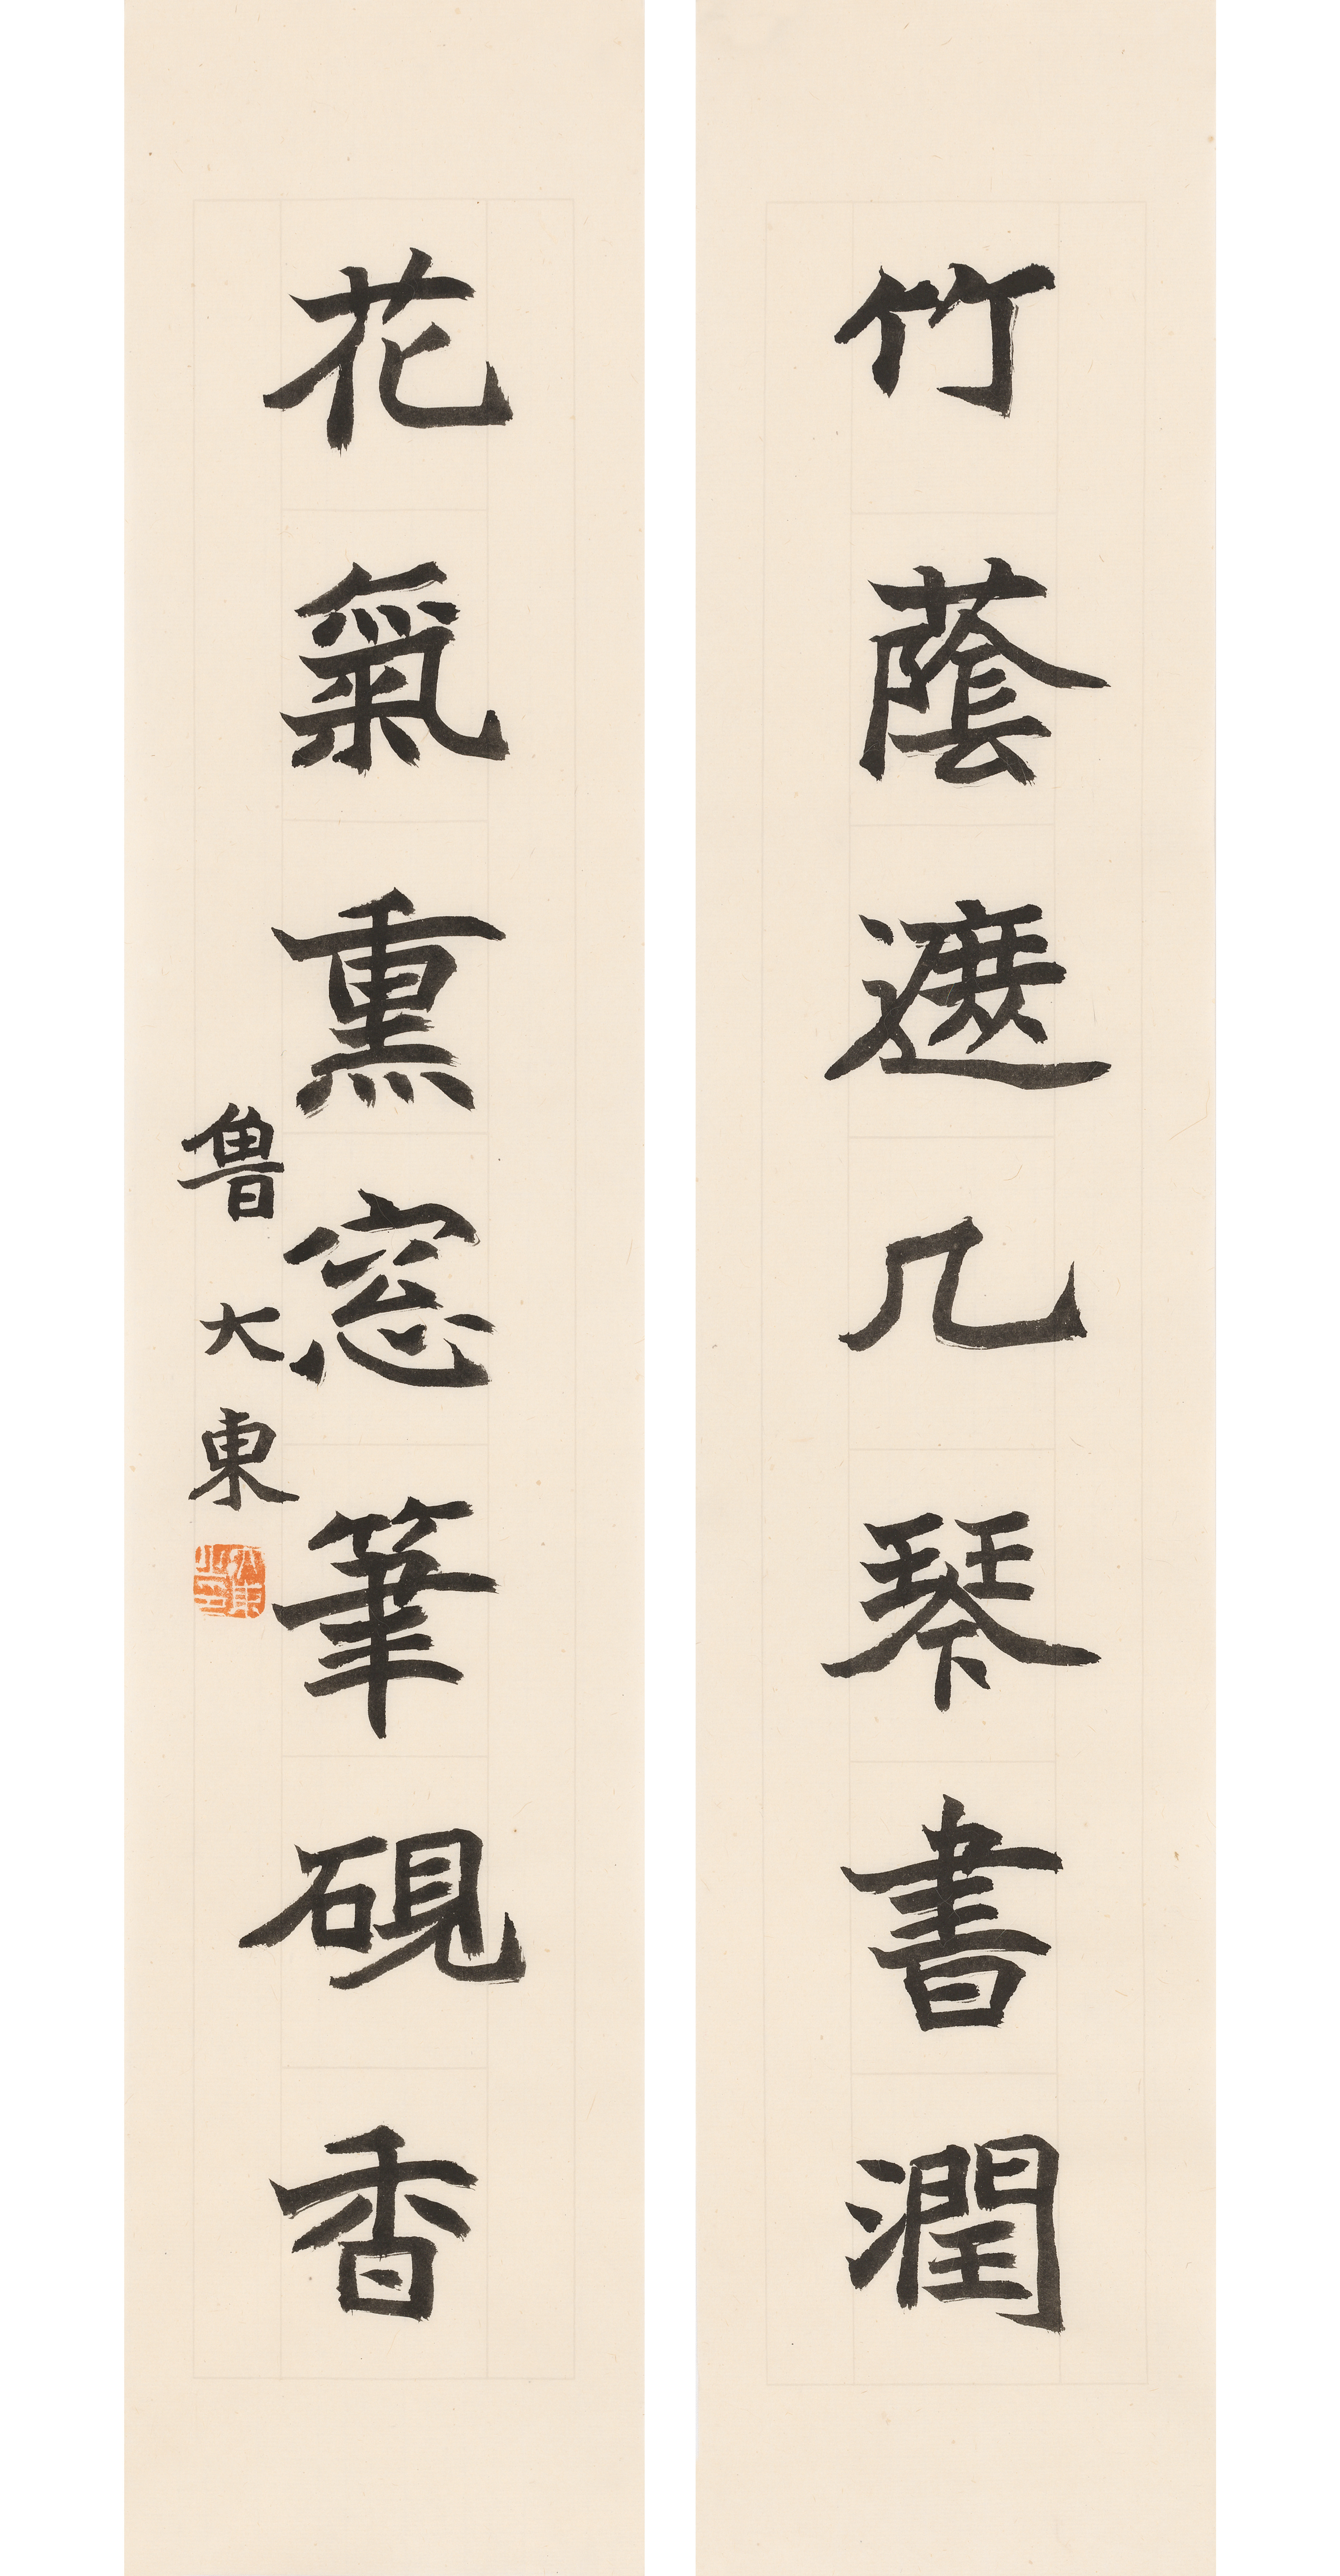 竹蔭遮几琴書潤
花氣熏窓筆硯香
魯大東